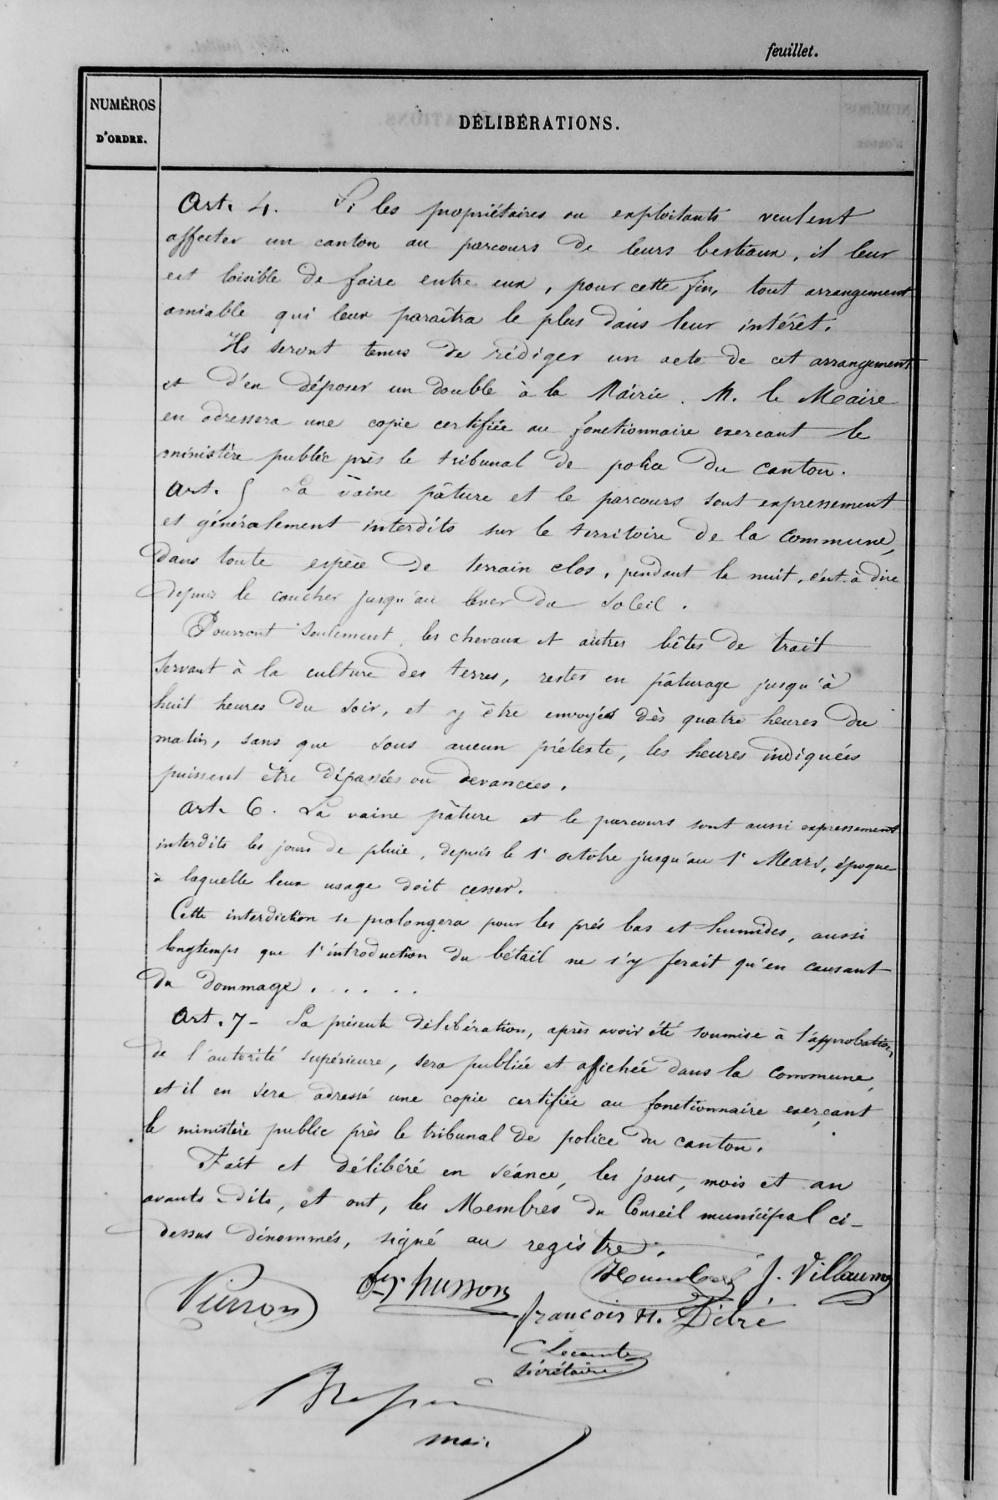 feuillet.
NUMÉROS
D'ORDRE.
DÉLIBÉRATIONS.
Art. 4. Si les propriétaires ou exploitants veulent
affecter un canton au parcours de leurs bestiaux, il leur
est loisible de faire entre eux, pour cette fin, tout arrangement
amiable qui leur paraîtra le plus dans leur intérêt.
Ils seront tenus de rédiger un acte de cet arrangement
et d'en déposer un double à la Mairie. M. le Maire
en adressera une copie certifiée au fonctionnaire exercant le
ministère public près le tribunal de police du canton.
Art. 5 La vaine pâture et le parcours sont expressement
et généralement interdits sur le territoire de la Commune,
dans toute espèce de terrain clos, pendant la nuit, c'est-à-dire
depuis le coucher jusqu'au lever du soleil.
Pourront seulement les chevaux et autres bêtes de trait
servant à la culture des terres, rester en pâturage jusqu'à
huit heures du soir, et y être envoyés dès quatre heures du
matin, sans que sous aucun prétexte, les heures indiquées
puissent être dépassées ou devancées.
Art. 6. La vaine pâture et le parcours sont aussi expressement
interdits les jours de pluie, depuis le 1er octobre jusqu'au 1er Mars, époque
à laquelle leur usage doit cesser.
Cette interdiction se prolongera pour les prés bas et humides, aussi
longtemps que l'introduction du bétail ne s'y ferait qu'en causant
du dommage. . . . . .
Art. 7 - La présente délibération, après avoir été soumise à l'approbation
de l'autorité supérieure, sera publiée et affichée dans la Commune,
et il en sera adressé une copie certifiée au fonctionnaire exerçant
le ministère public près le tribunal de police du canton.
Fait et délibéré en séance, les jour, mois et an
avants-dits, et ont, les Membres du Conseil municipal ci-
dessus dénommés, signé au registre.
Pierron husson Humbert J. Villaume
françois H. Débré
Lecomte
secrétaire
maire